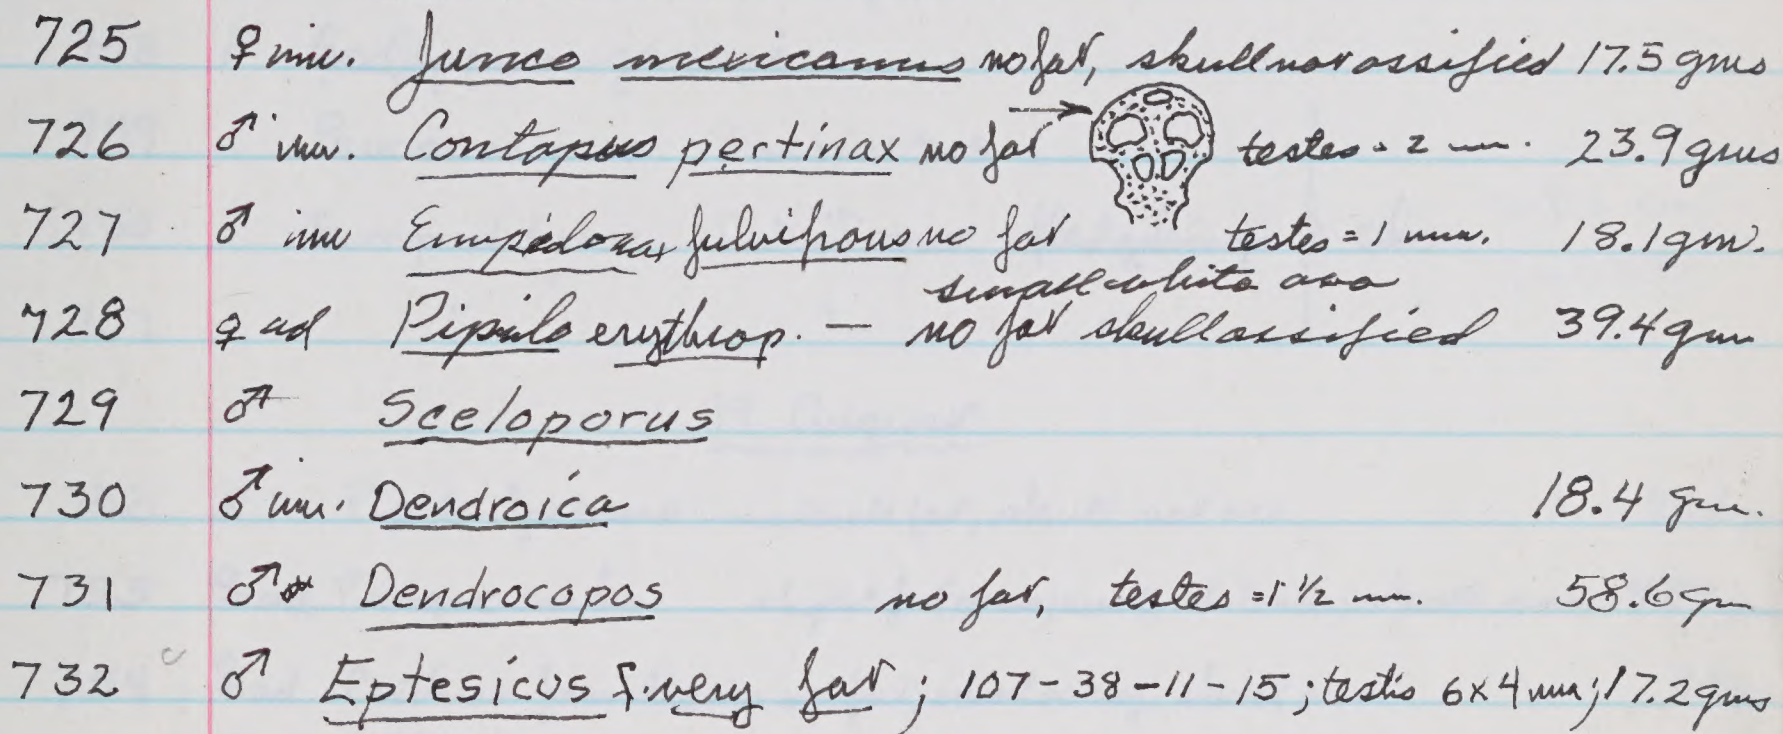 725 ♀ imm. Junco mexicanus no fat, skull not ossified 17.5 gms
726 ♂ imm. Contopus pertinax no fat testes = 2 mm. 23.9 gms
727 ♂ imm Empidonax fulvifrons no fat testes = 1 mm. 18.1 gm.
small white ova
728 ♀ ad Pipilo erythrop. — no fat skull ossified 39.4 gm
729 ♂ Sceloporus
730 ♂ imm. Dendroica 18.4 gm.
731 ♂ Dendrocopos no fat, testes = 1 1/2 mm. 58.6 gm
732 ♂ Eptesicus f. very fat; 107-38-11-15; testis 6x4 mm; 17.2 gms